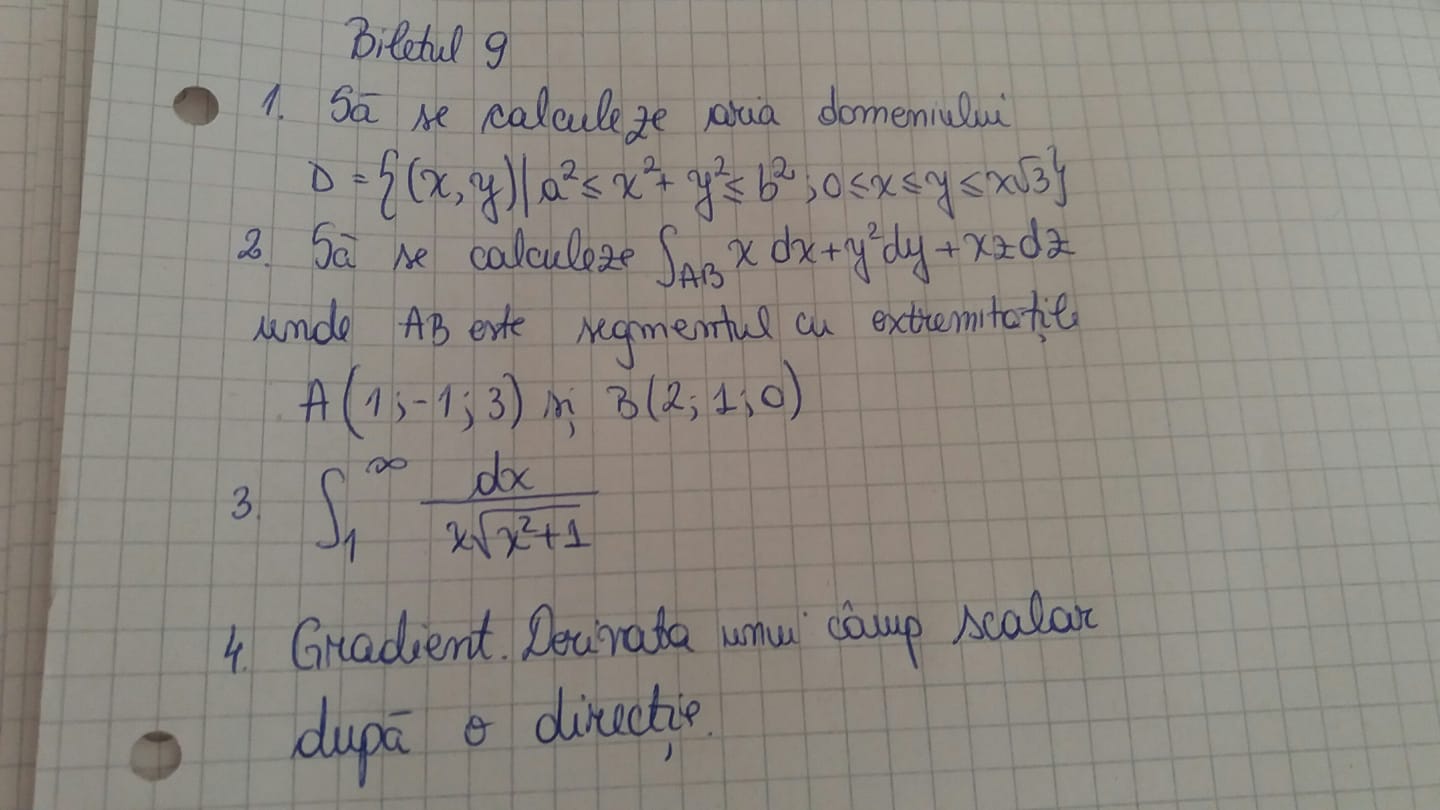 Biletul 9
1. Să se calculeze aria domeniului
D = {(x, y) | a² ≤ x² + y² ≤ b²; 0 ≤ x ≤ y ≤ x√3}
2. Să se calculeze ∫_AB x dx + y²dy + xz dz
unde AB este segmentul cu extremitățile
A(1; -1; 3) și B(2; 1; 0)
3. ∫₁^∞ dx / (x√(x²+1))
4. Gradient. Derivata unui câmp scalar
după o direcție.